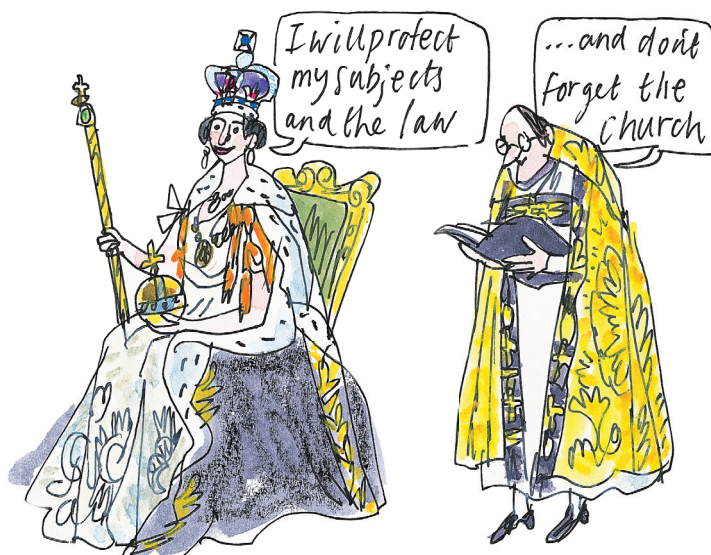 I will protect
my subjects
and the law
...and don't
forget the
church